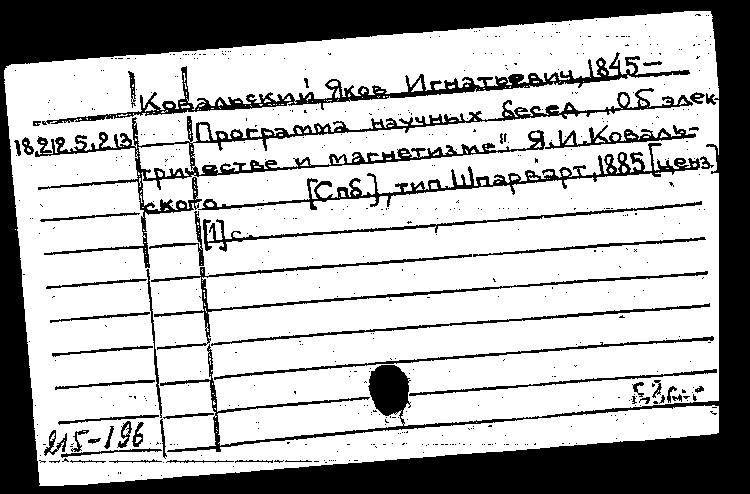 Ковальский, Яков Игнатьевич, 1845–
18.212.5.213 Программа научных бесед „Об элек-
тричестве и магнетизме". Я.И.Коваль-
ского. [Спб.], тип. Шпарварт, 1885 [ценз]
[1] с.
215-196